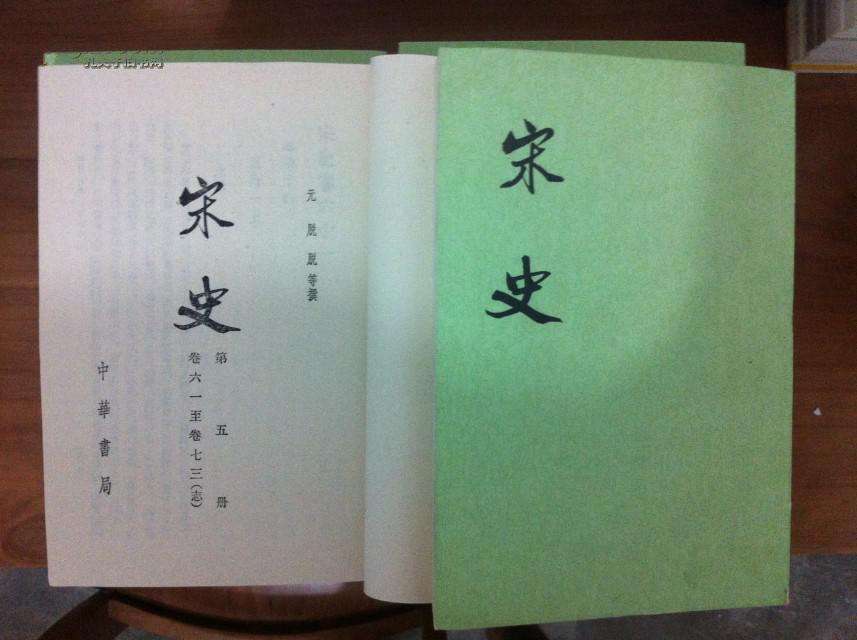 元 脱 脱 等撰
宋史
第五册
卷六一至卷七三(志)
中華書局
宋史